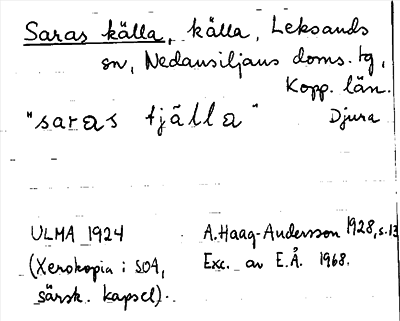 Saras källa, källa, Leksands
sn, Nedansiljans doms. tg,
Kopp. län.
"saras tjälla" Djura
ULMA 1924 A. Haag-Andersson 1928, s. 13
(Xerokopia i SOA, Exc. av E.Å. 1968.
särsk. kapsel).